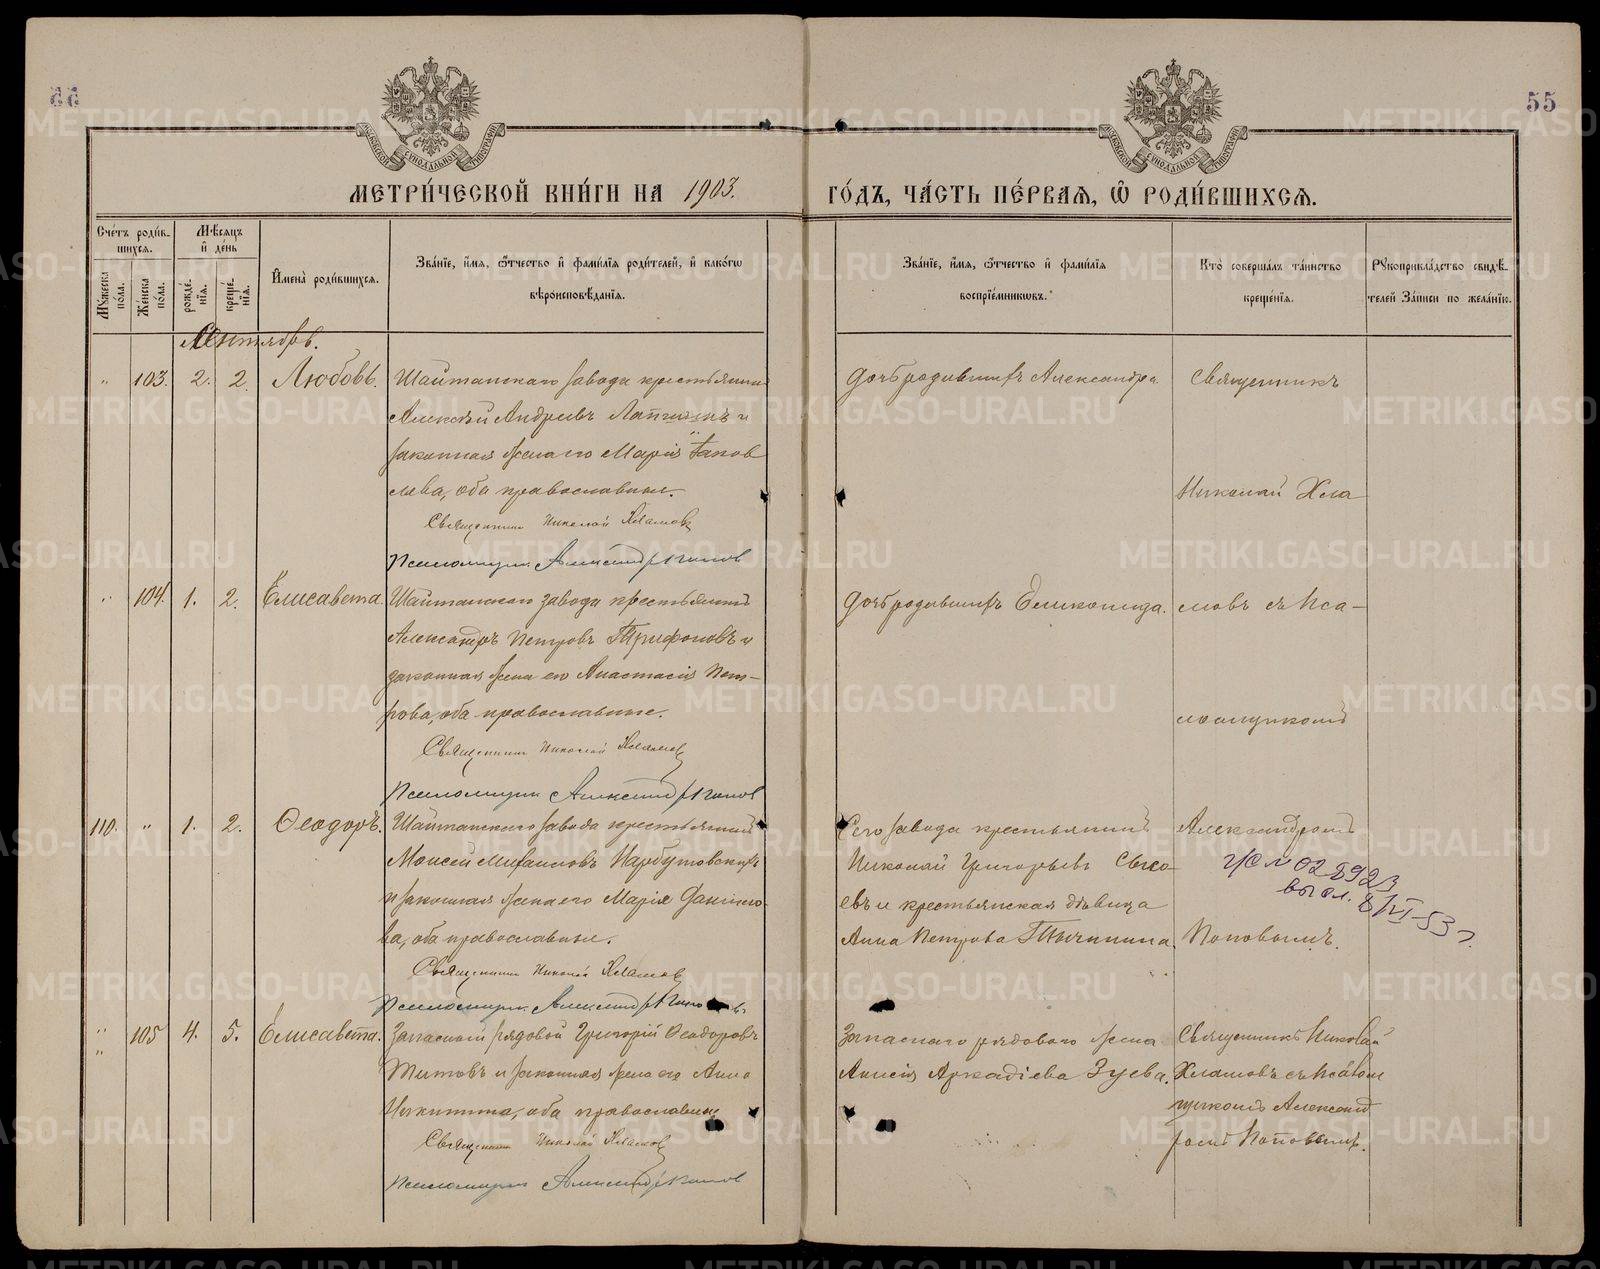 55
МЕТРИ́ЧЕСКОЙ КНИ́ГИ НА 1903. ГО́ДЪ, ЧА́СТЬ ПЕ́РВАЯ, Ѡ РОДИ́ВШИХСЯ.
Сче́тъ роди́в-
шихся.
Му́жеска по́ла.
Же́нска по́ла.
Мѣ́сяцъ
и де́нь
рожде́нїя.
креще́нїя.
Имена̀ роди́вшихся.
Зва́нїе, и́мя, ѻ҆́тчество и фами́лїя роди́телей, и како́гѡ
вѣроисповѣ́данїя.
Зва́нїе, и́мя, ѻ҆́тчество и фами́лїя
воспрїе́мниковъ.
Кто̀ соверша́лъ та́инство
креще́нїя.
Рукоприкла́дство свидѣ́-
телей за́писи по жела́нїю.
Сентябрь.
" 103. 2. 2. Любовь.
Шайтанскаго завода крестьянинъ
Алексѣй Андреевъ и
законная жена его Марія Іаков
лева, оба православные.
Священникъ Николай Хламовъ
Псаломщикъ Александръ Поповъ
Дочь родившихъ Александра.
Священникъ
Николай Хла
" 104. 1. 2. Елисавета.
Шайтанскаго завода крестьянинъ
Александръ Петровъ Трифоновъ и
законная жена его Анастасія Пет-
рова, оба православные.
Священникъ Николай Хламовъ
Псаломщикъ Александръ Поповъ
мовъ съ Пса-
ломщикомъ
110. " 1. 2. Ѳеодоръ.
Шайтанскаго завода крестьянинъ
Моисей Михаиловъ Нарбутовскихъ
и законная жена его Марія Данило-
ва, оба православные.
Священникъ Николай Хламовъ
Псаломщикъ Александръ Поповъ
Сего завода крестьянинъ
Николай Григорьевъ
евъ и крестьянская дѣвица
Анна Петрова
Александромъ
выдл. 8/VI-53 г.
Поповымъ.
" 105 4. 5. Елисавета.
Запасный рядовой Григорій Ѳеодоровъ
Титовъ и законная жена его Анна
Никитина, оба православные
Священникъ Николай Хламовъ
Псаломщикъ Александръ Поповъ
Запаснаго рядового жена
Анисія Аркадіева Зуева.
Священникъ Николай
Хламовъ съ Псалом
щикомъ Александ
ромъ Поповымъ.
METRIKI.GASO-URAL.RU